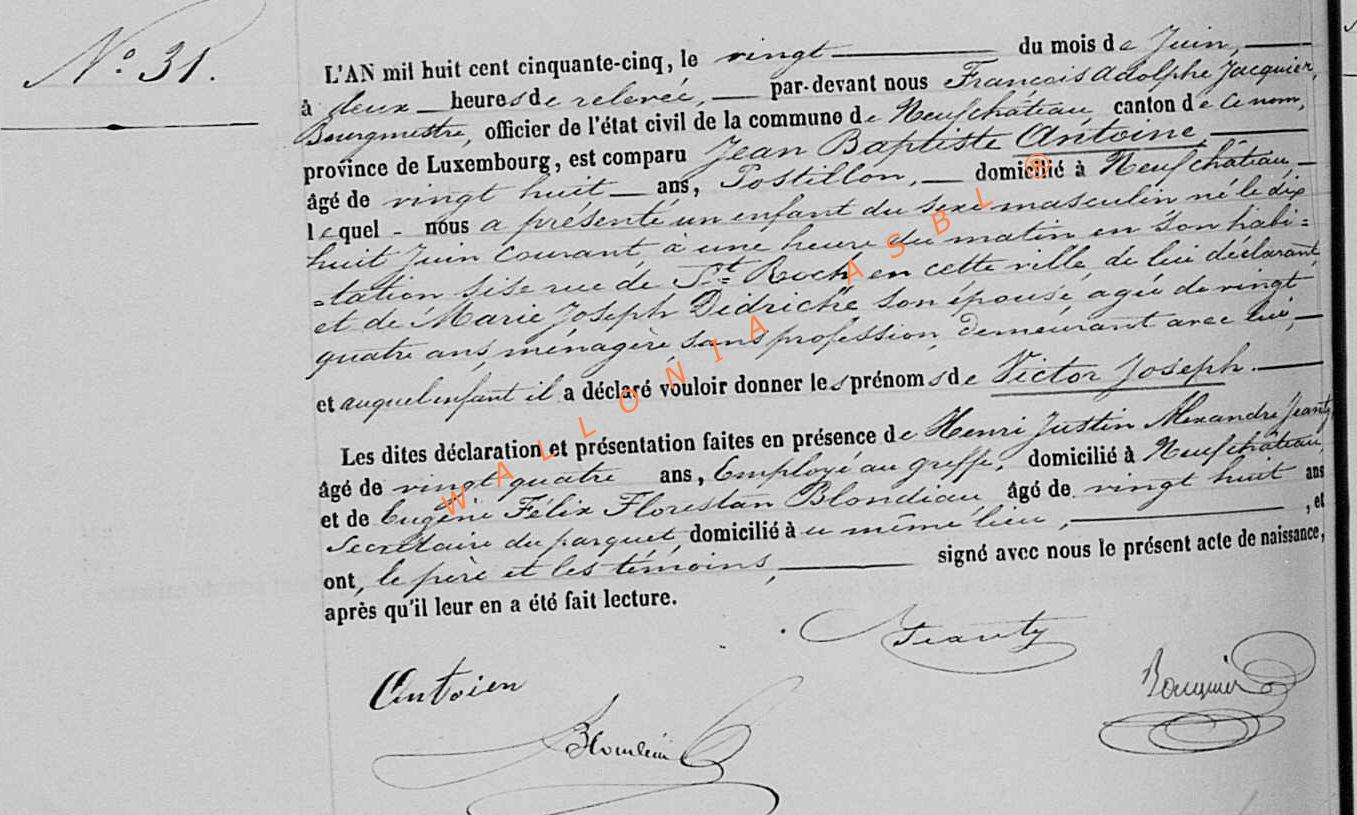 N.º 31.
L'AN mil huit cent cinquante-cinq, le vingt du mois de Juin,
à deux heures de relevée, par-devant nous François Adolphe Jacquier,
Bourgmestre, officier de l'état civil de la commune de Neufchâteau, canton de ce nom,
province de Luxembourg, est comparu Jean Baptiste Antoine,
âgé de vingt huit ans, Postillon, domicilié à Neufchâteau
lequel nous a présenté un enfant du sexe masculin né le dix
huit Juin courant à une heure du matin en son habi=
=tation sise rue de St Roch en cette ville, de lui déclarant
et de Marie Joseph Didriche son épouse, agée de vingt
quatre ans, ménagère, sans profession, demeurant avec lui,
et auquel enfant il a déclaré vouloir donner les prénoms de Victor Joseph.
Les dites déclaration et présentation faites en présence de Henri Justin Alexandre Jeanty,
âgé de vingt quatre ans, Employé au greffe, domicilié à Neufchâteau,
et de Eugène Félix Florestan Blondiau âgé de vingt huit ans
Secrétaire du parquet, domicilié à u même lieu, , et
ont, le père et les témoins, signé avec nous le présent acte de naissance,
après qu'il leur en a été fait lecture.
Jeanty
Antoien
WALLONIA ASBL ®